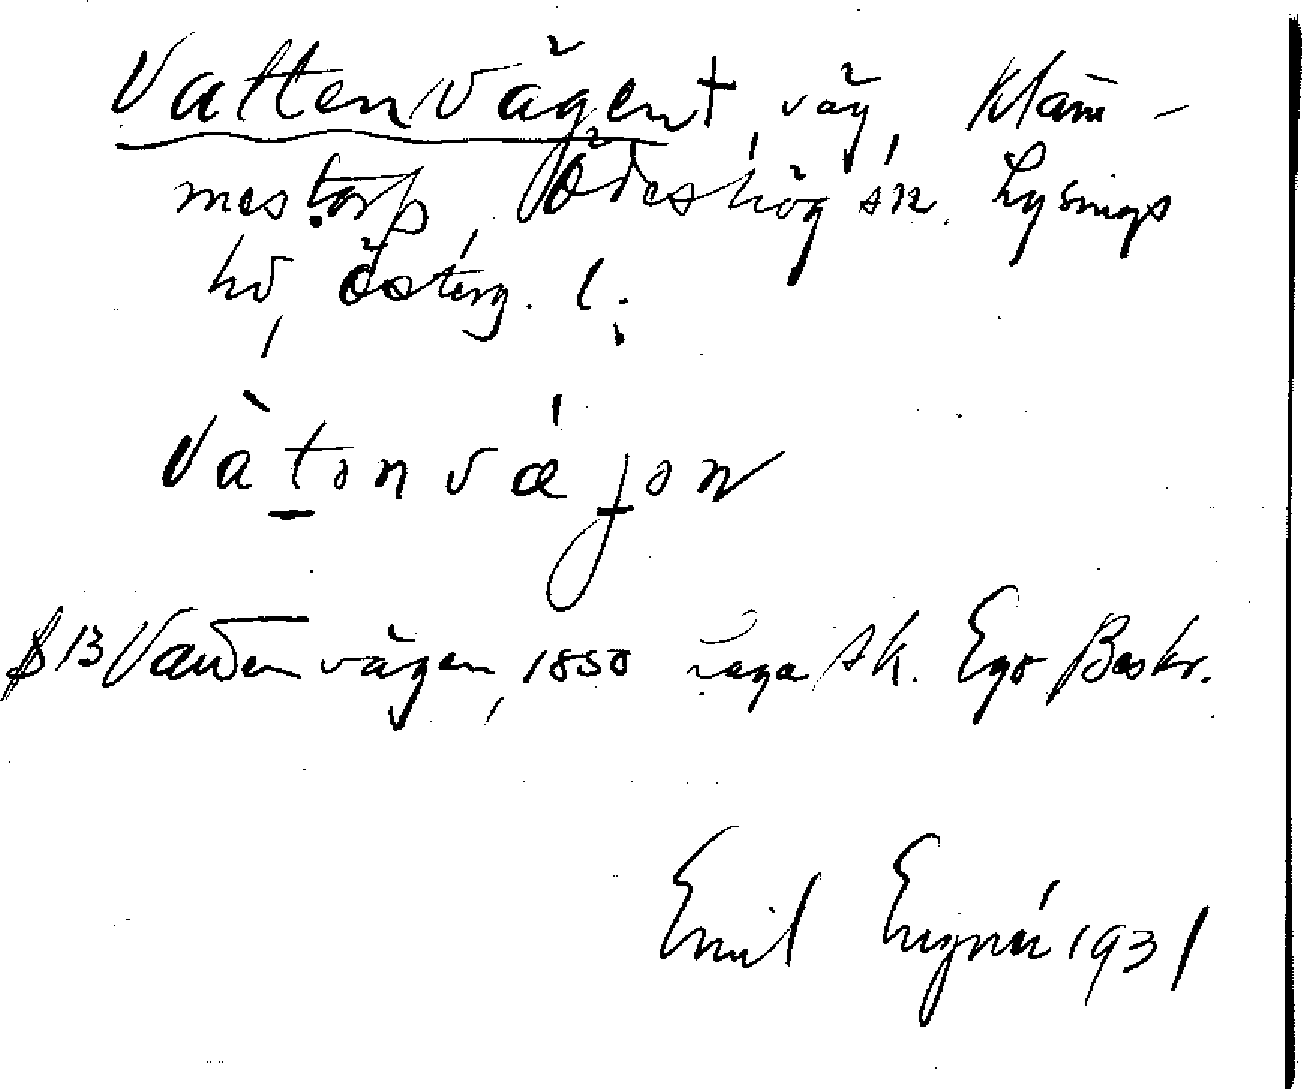 Vattenvägen†, väg, Kläm-
mestorp, Ödeshög sn. Lysings
hd, Österg. l.
vàtənvǽjən
B 13 Vattenvägen, 1850 Laga sk. Ego Beskr.
Emil 1931